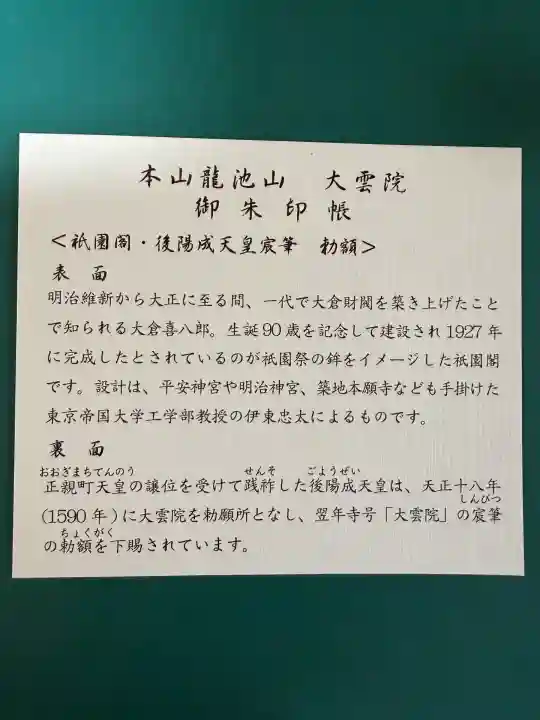 本山龍池山　大雲院
御朱印帳
＜祇園閣・後陽成天皇宸筆　勅額＞
表　面
明治維新から大正に至る間、一代で大倉財閥を築き上げたこと
で知られる大倉喜八郎。生誕90歳を記念して建設され1927年
に完成したとされているのが祇園祭の鉾をイメージした祇園閣
です。設計は、平安神宮や明治神宮、築地本願寺なども手掛けた
東京帝国大学工学部教授の伊東忠太によるものです。
裏　面
おおぎまちてんのう　せんそ　ごようぜい
正親町天皇の譲位を受けて践祚した後陽成天皇は、天正十八年
(1590年)に大雲院を勅願所となし、翌年寺号「大雲院」の宸筆
しんぴつ
ちょくがく
の勅額を下賜されています。